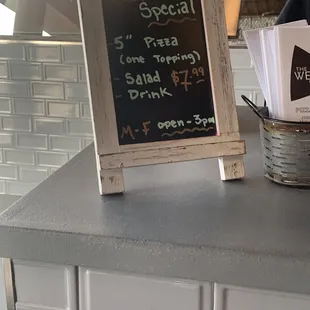 Special
- 5" Pizza
(one Topping)
- Salad $7.99
- Drink
M-F open - 3pm
THE
WE
PIZZ